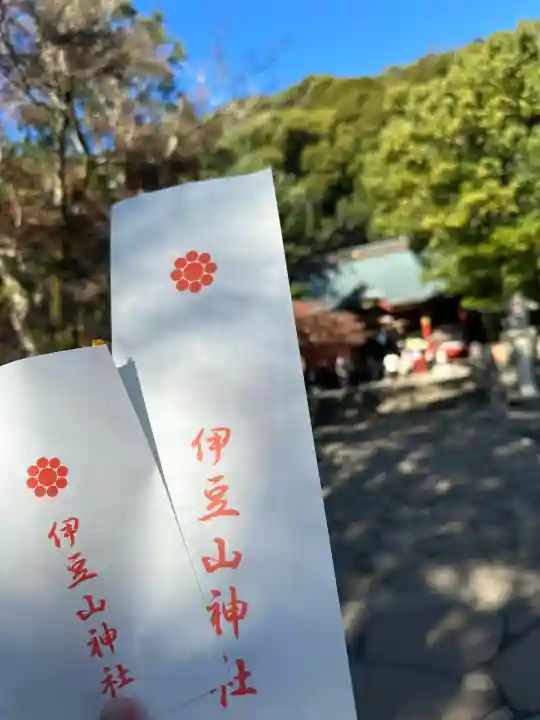 伊豆山神社
伊豆山神社